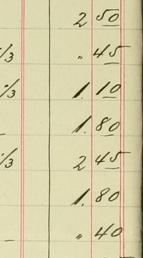 2 50
/3 " 45
/3 1. 10
1. 80
/3 2 45
1. 80
" 40